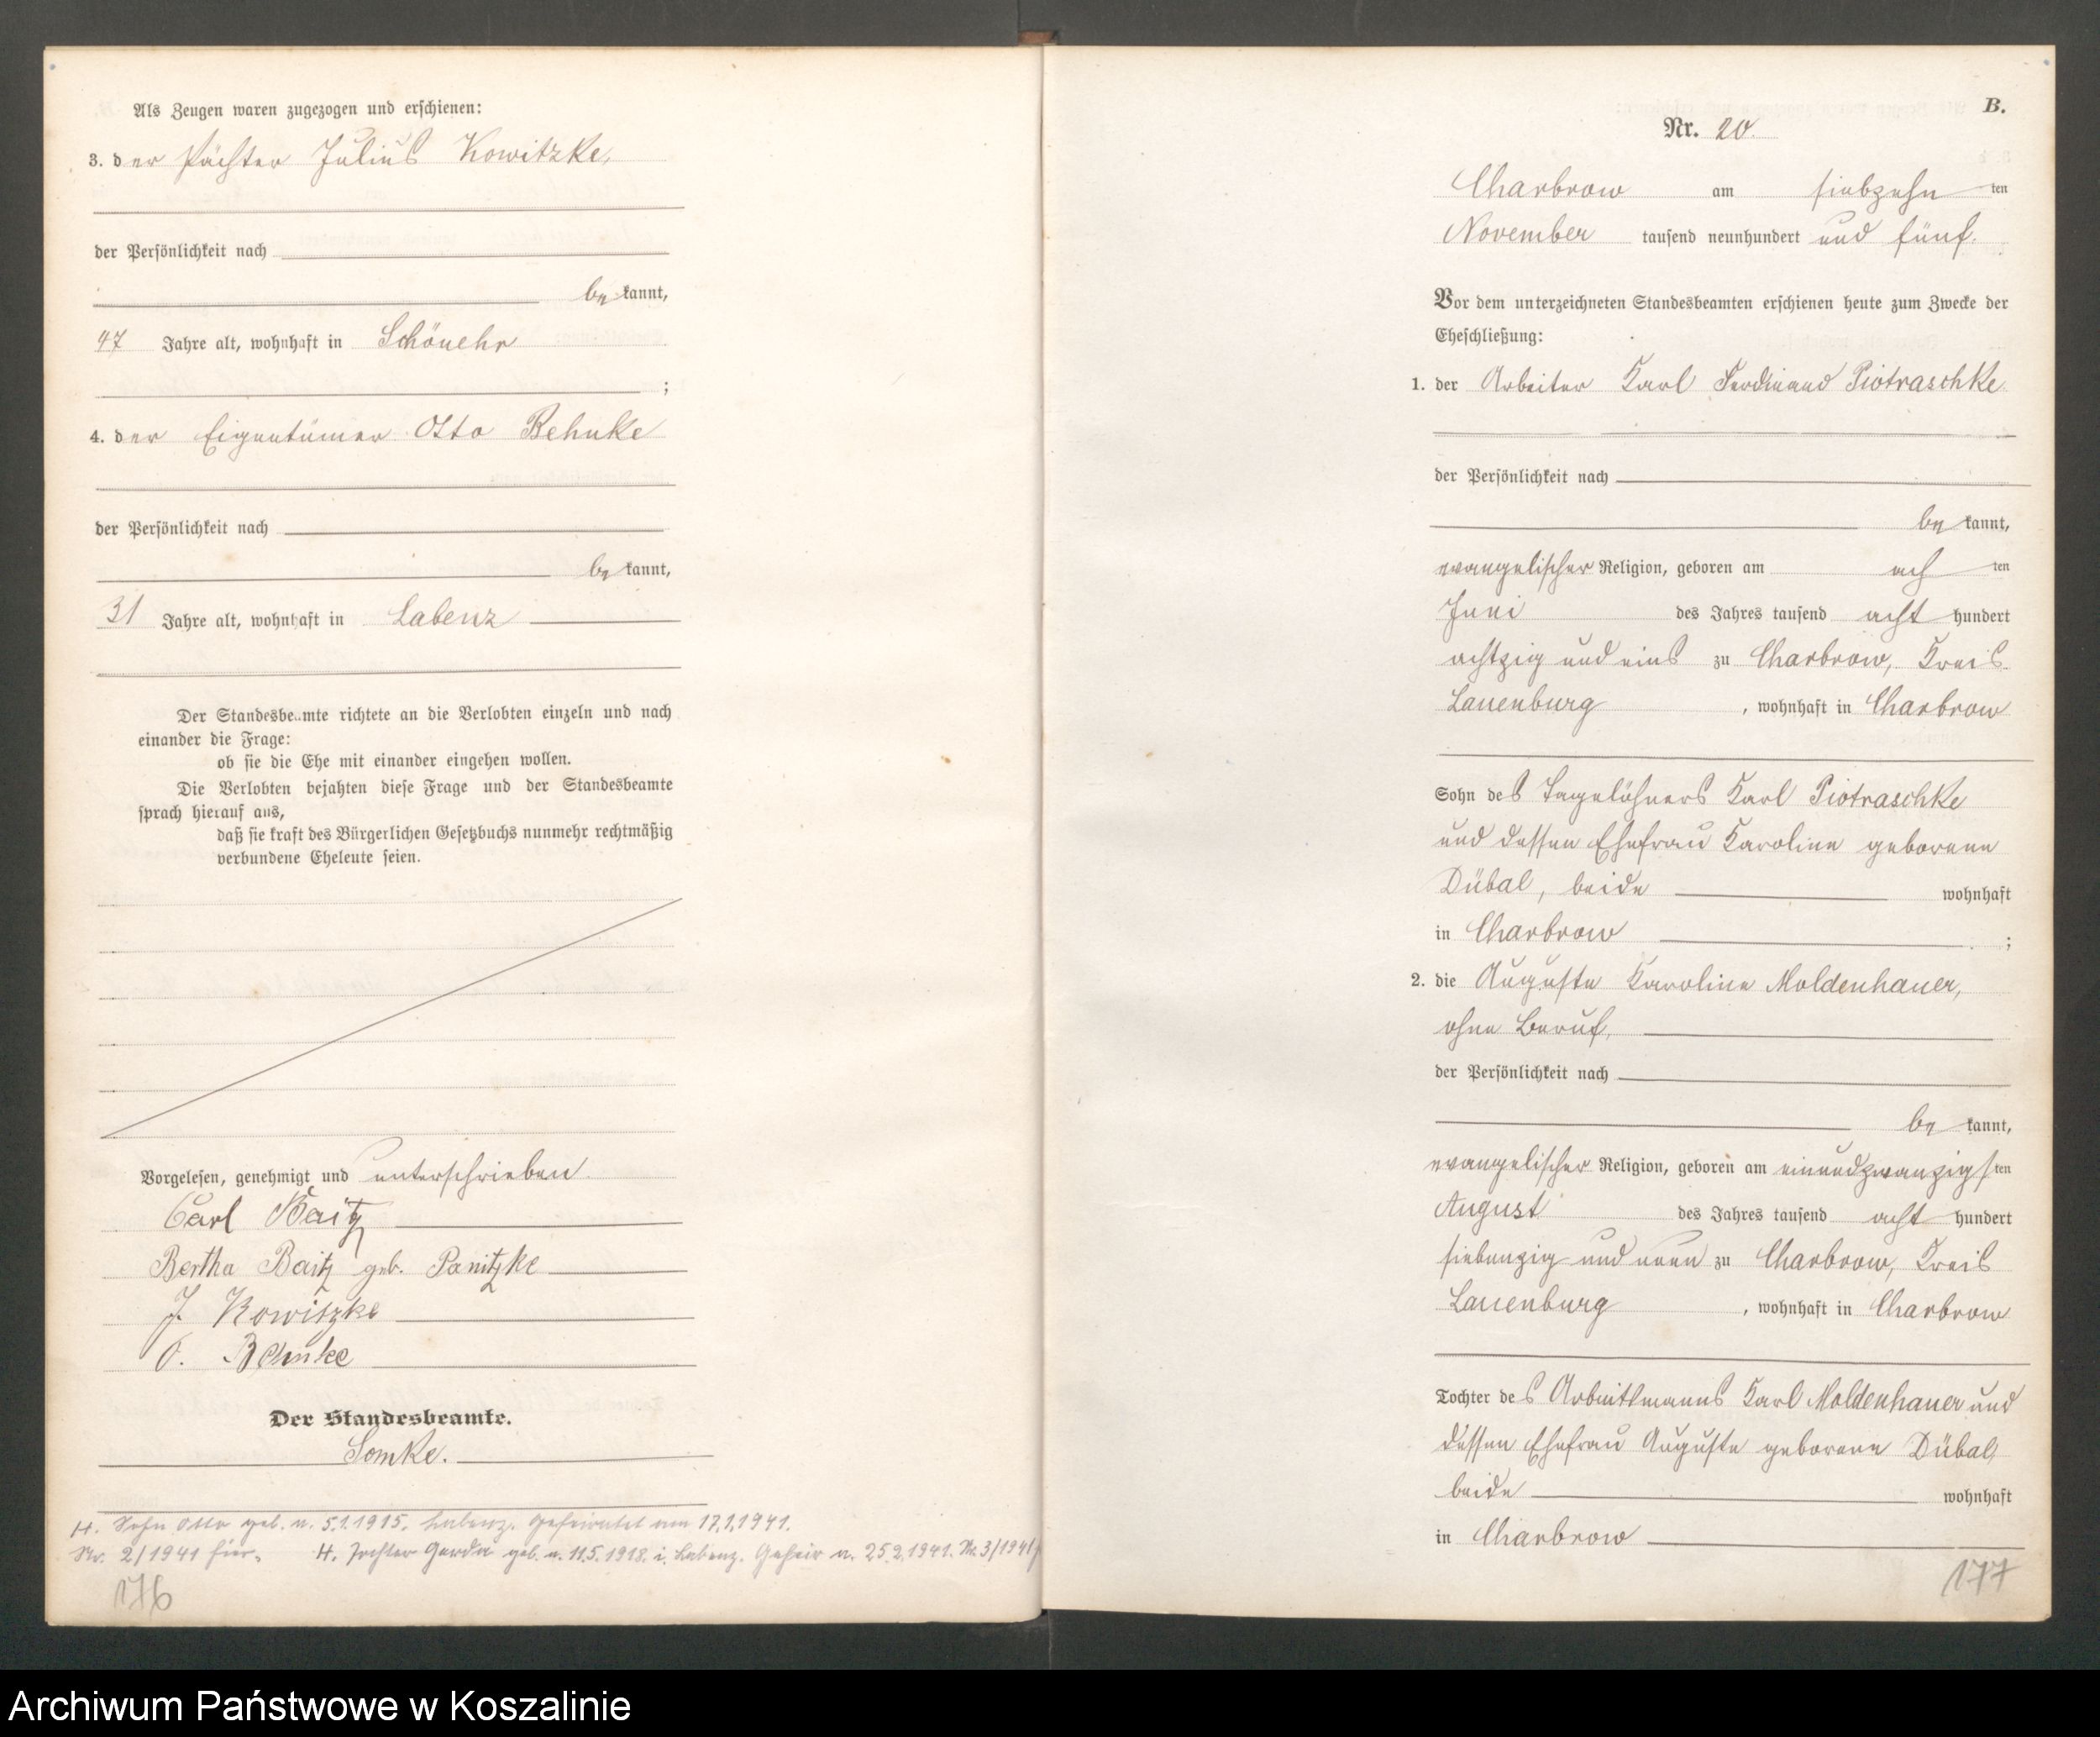 Als Zeugen waren zugezogen und erschienen:
3. der Pächter Julius Kowitzke,
der Persönlichkeit nach
be kannt,
47 Jahre alt, wohnhaft in Schönehr
;
4. der Eigentümer Otto Behnke
der Persönlichkeit nach
be kannt,
31 Jahre alt, wohnhaft in Labenz
Der Standesbeamte richtete an die Verlobten einzeln und nach
einander die Frage:
ob sie die Ehe mit einander eingehen wollen.
Die Verlobten bejahten diese Frage und der Standesbeamte
sprach hierauf aus,
daß sie kraft des Bürgerlichen Gesetzbuchs nunmehr rechtmäßig
verbundene Eheleute seien.
Vorgelesen, genehmigt und unterschrieben.
Carl Baitz
Bertha Baitz geb. Panitzke
J. Kowitzke
O. Behnke
Der Standesbeamte.
Somke.
H. Sohn Otto geb. a. 5.1.1915. Labenz. Geheiratet am 17.1.1941.
Nr. 2/1941 hier. H. Tochter Gerda geb. a. 11.5.1918. i. Labenz. Geheir a. 25.2.1941. Nr. 3/1941
176
B.
Nr. 20.
Charbrow am siebzehn ten
November tausend neunhundert und fünf.
Vor dem unterzeichneten Standesbeamten erschienen heute zum Zwecke der
Eheschließung:
1. der Arbeiter Karl Ferdinand Piotraschke
der Persönlichkeit nach
be kannt,
evangelischer Religion, geboren am ach ten
Juni des Jahres tausend acht hundert
achtzig und eins zu Charbrow, Kreis
Lauenburg , wohnhaft in Charbrow
Sohn des Tagelöhners Karl Piotraschke
und dessen Ehefrau Karoline geborene
Dübal, beide wohnhaft
in Charbrow ;
2. die Auguste Karoline Moldenhauer,
ohne Beruf,
der Persönlichkeit nach
be kannt,
evangelischer Religion, geboren am einundzwanzigs ten
August des Jahres tausend acht hundert
siebenzig und neun zu Charbrow, Kreis
Lauenburg , wohnhaft in Charbrow
Tochter des Arbeitsmanns Karl Moldenhauer und
dessen Ehefrau Auguste geborene Dübal,
beide wohnhaft
in Charbrow
177
Archiwum Państwowe w Koszalinie